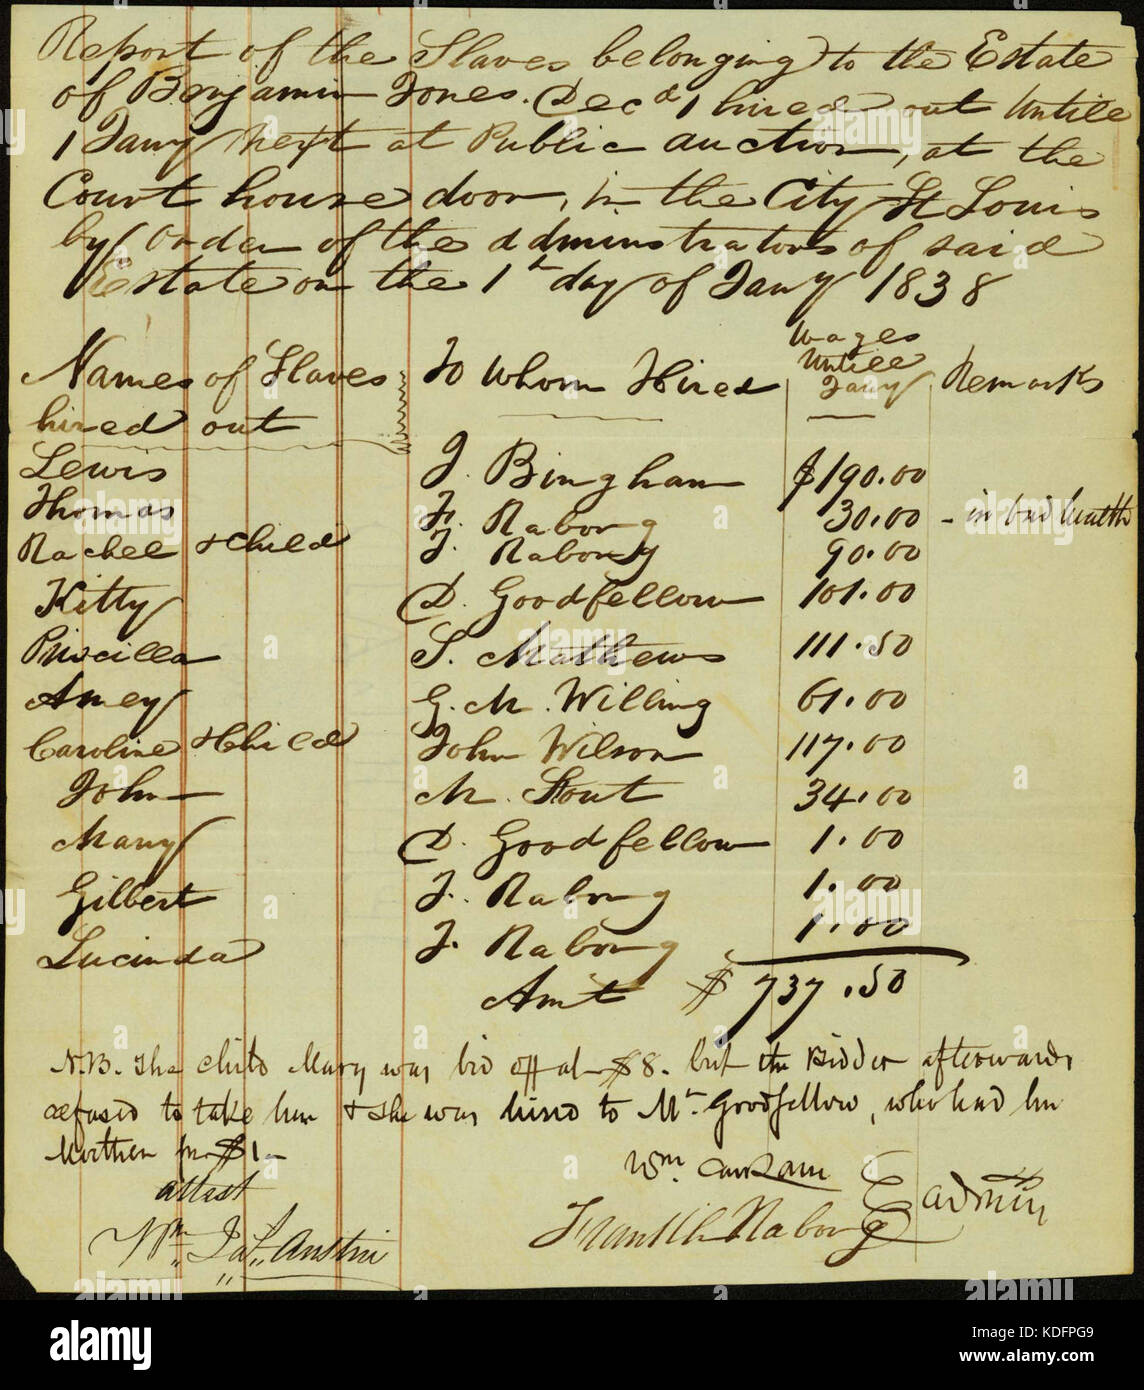 Report of the Slaves belonging to the Estate
of Benjamin Jones. Decd, hired out Untill
1 Jany next at Public auction, at the
Court house door, in the City St Louis
by order of the administrators of said
Estate on the 1st day of Jany 1838
Names of Slaves hired out To Whom Hired Wages Untill Jany Remarks
Lewis J. Bingham $190.00
Thomas F. Nabong 30.00 - in bad health
Rachel & Child F. Nabong 90.00
Kitty D. Goodfellow 101.00
Priscilla S. Mathews 111.50
Amey G. M. Willing 61.00
Caroline & Child John Wilson 117.00
John M. Stout 34.00
Mary D. Goodfellow 1.00
Gilbert F. Nabong 1.00
Lucinda F. Nabong 1.00
Amt $737.50
N.B. The child Mary was bid off at $8. but the Bidder afterwards
refused to take her & she was hired to Mr. Goodfellow, who had her
Mother for $1
attest
Wm Austin
Wm
Franklin Nabong admin
alamy
Image ID: KDFPG9
www.alamy.com